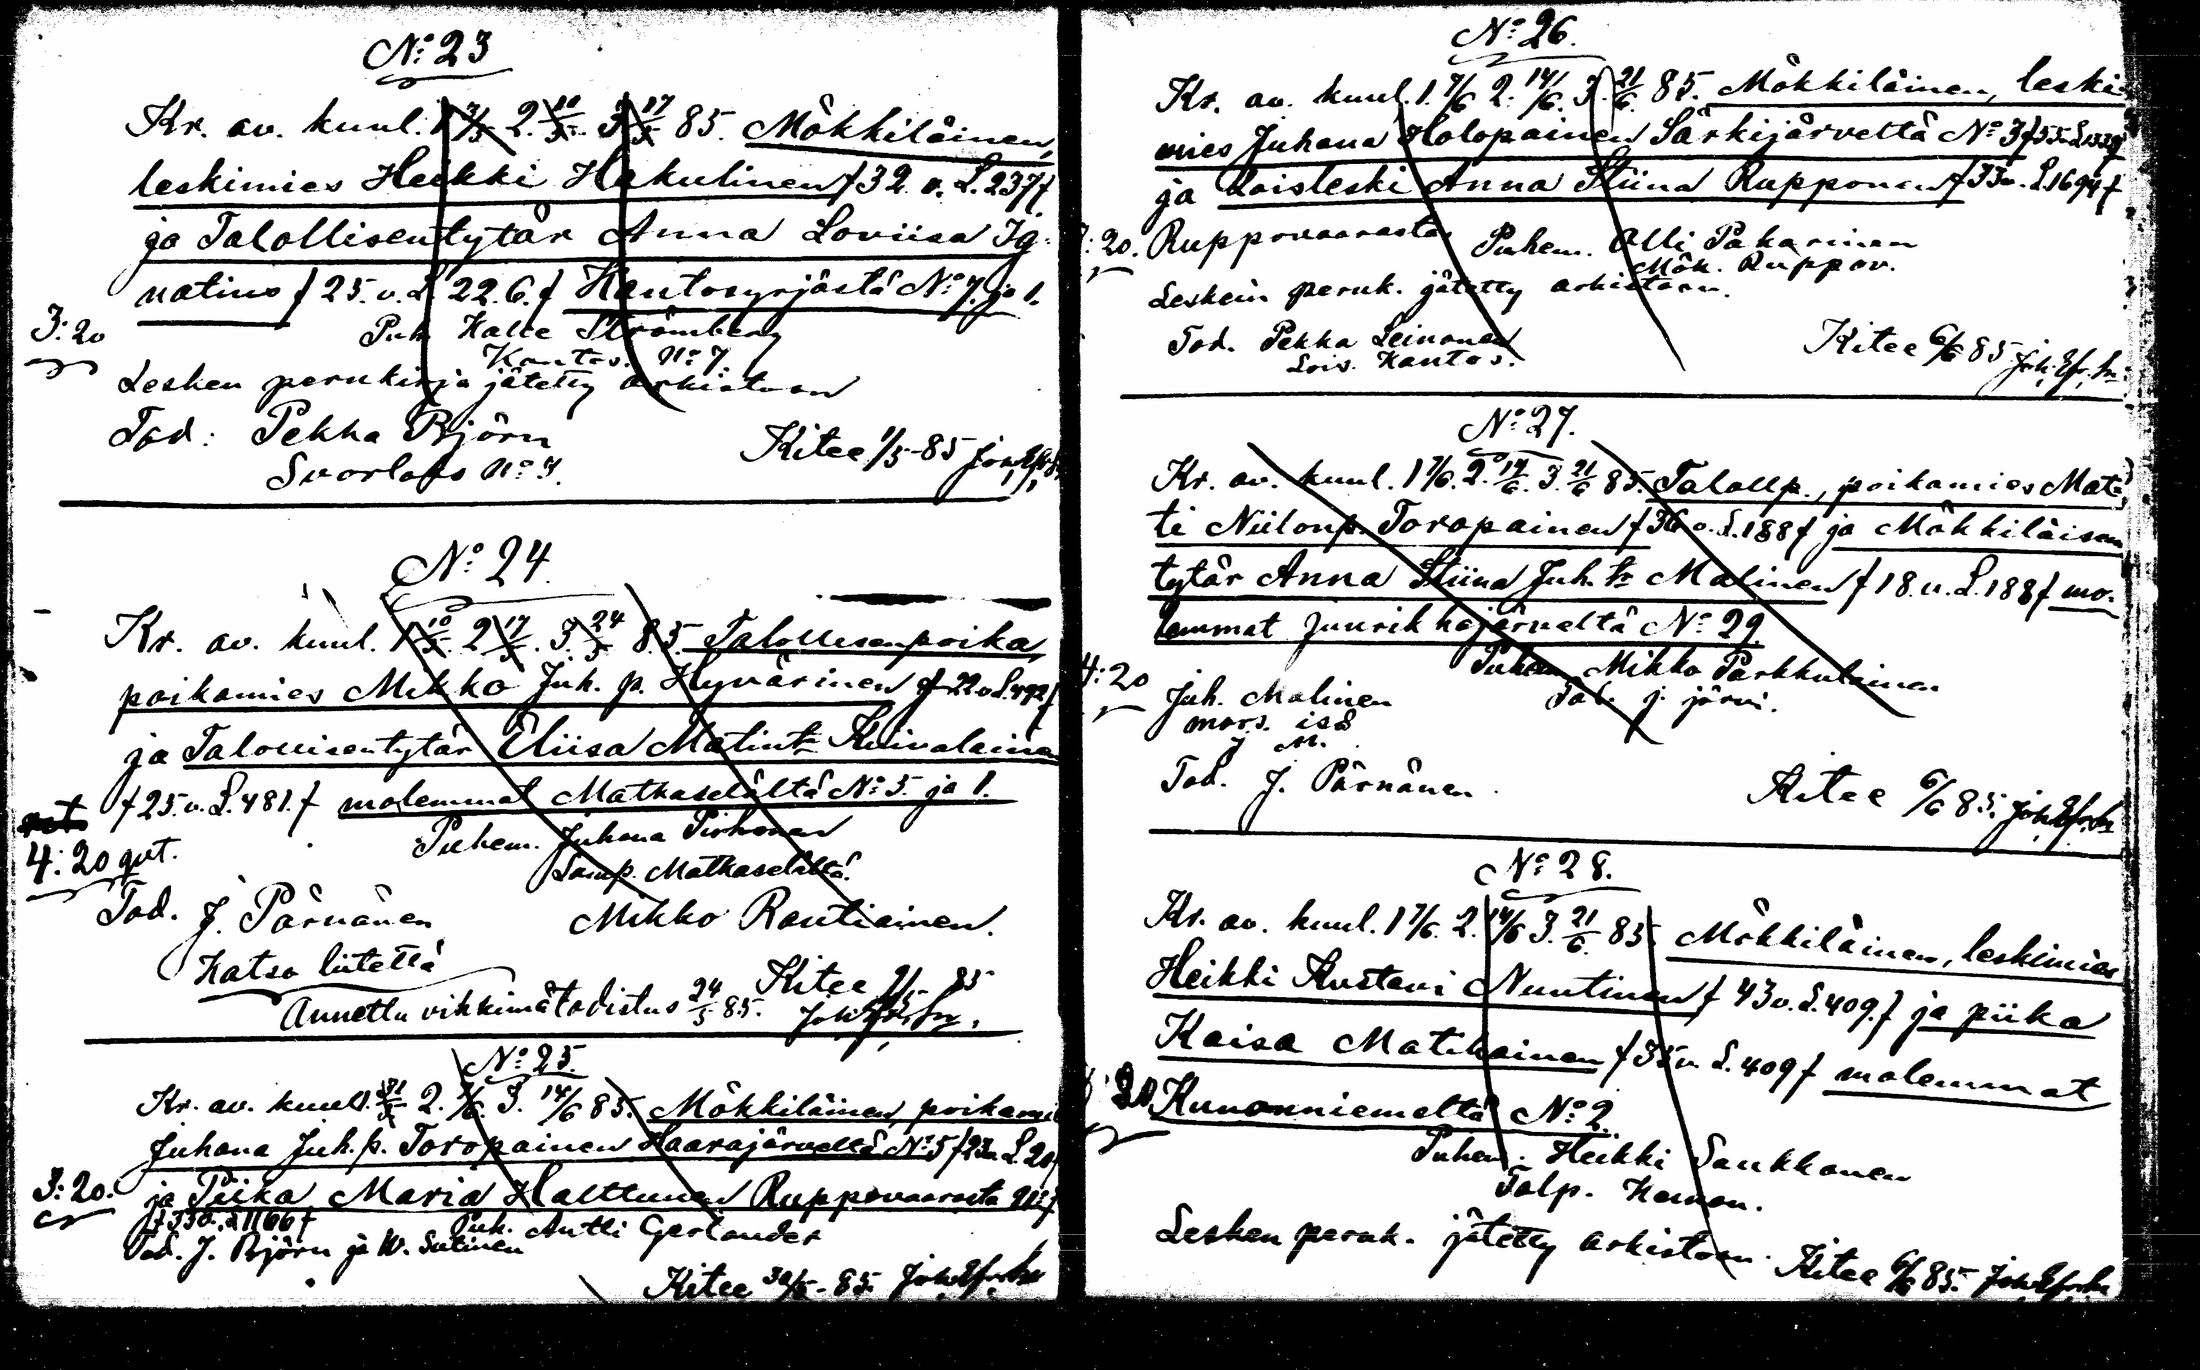 No 23
Kr. av. kuul. 1 3/5 2. 10/5 3 17/5 85. Mökkiläinen,
leskimies Heikki Hakulinen f 32 v. L. 237 f
ja Talollisentytär Anna Loviisa Ig-
natius f 25. v. L 22.6. f Kantosyrjästä No 7. ja 1.
3:20
Puh Kalle Strömberg
Kantos. No 7.
Lesken perukirja jätetty arkistoon
Tod: Pekka Björn
Suorlaks No 4.
Kitee 1/5-85
No 24.
Kr. av. kuul. 1 10/5. 2 17/5. 3. 24/5 85. Talollisenpoika,
poikamies Mikko Juh. p. Hyvärinen f 22 v. L. 492 f
ja Talollisentytär Eliisa Matint. Kuivalainen
f 25. v. L. 481. f molemmat Matkaselältä No 5. ja 1.
4:20 qvt.
Puhem. Juhana Pirhonen
Lamp. Matkaselältä.
Tod. J. Pärnänen
Mikko Rautiainen.
Katso liitettä
Annettu vihkimätodistus 24/5 85.
Kitee 85
No 25.
Kr. av. kuul. 1. 31/5 2. 7/6. 3. 14/6 85. Mökkiläinen, poikami
Juhana Juh. p. Toropainen Haarajärveltä No 5 f 23 v. L. 20 f
3:20.
ja Piika Maria Halttunen Ruppovaarasta
f 33 v. L 1166 f
Puh. Antti Gerlander
Tod. J. Björn ja W. Sutinen
Kitee 30/5-85.
No 26.
Kr. av. kuul. 1. 7/6 2. 14/6. 3. 21/6. 85. Mökkiläinen, leski-
mies Juhana Holopainen Särkijärveltä No 3 f 55 v. L 1339
ja Loisleski Anna Stiina Rupponen f 33 v. L. 1694 f
:20.
Ruppovaarasta Puhem. Olli Pakarinen
Mök. Ruppov.
Leskein peruk. jätetty arkistoon.
Tod. Pekka Leinonen
Lois. Kantos.
Kitee 6/6 85
No 27.
Kr. av. kuul. 1 7/6. 2. 14/6. 3. 21/6 85. Talollp., poikamies Mat-
ti Niilonp. Toropainen f 36 v. L. 188 f ja Mökkiläisen
tytär Anna Stiina Juh. tr Malinen f 18. v. L. 188 f mo-
lemmat Juurikkajärveltä No 29
4:20
Puhem. Mikko Parkkulainen
Tal. j. järvi.
Juh. Malinen
mors. isä
J M.
Tod. J. Pärnänen
Kitee 6/6 85.
No 28.
Kr. av. kuul. 1 7/6. 2. 14/6 3. 21/6. 85. Mökkiläinen, leskimies
Heikki Kustavi Nuutinen f 43 v. L. 409. f ja piika
Kaisa Matikainen f 35 v. L. 409 f molemmat
:20
Kunonniemeltä No 2.
Puhem. Heikki Saukkonen
Talp. Kunon.
Lesken peruk. jätetty arkistoon. Kitee 6/6 85.